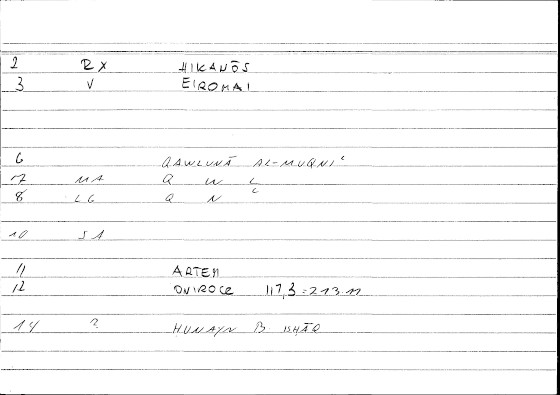 2 RX HIKANŌS
3 V EIROMAI
6 QAWLUNĀ AL-MUQNIʿ
7 MA Q W L
8 LG Q N ʿ
10 SA
11 ARTEM
12 ONIROCR 117,3 = 213.11
14 ? HUNAYN B. ISHĀQ